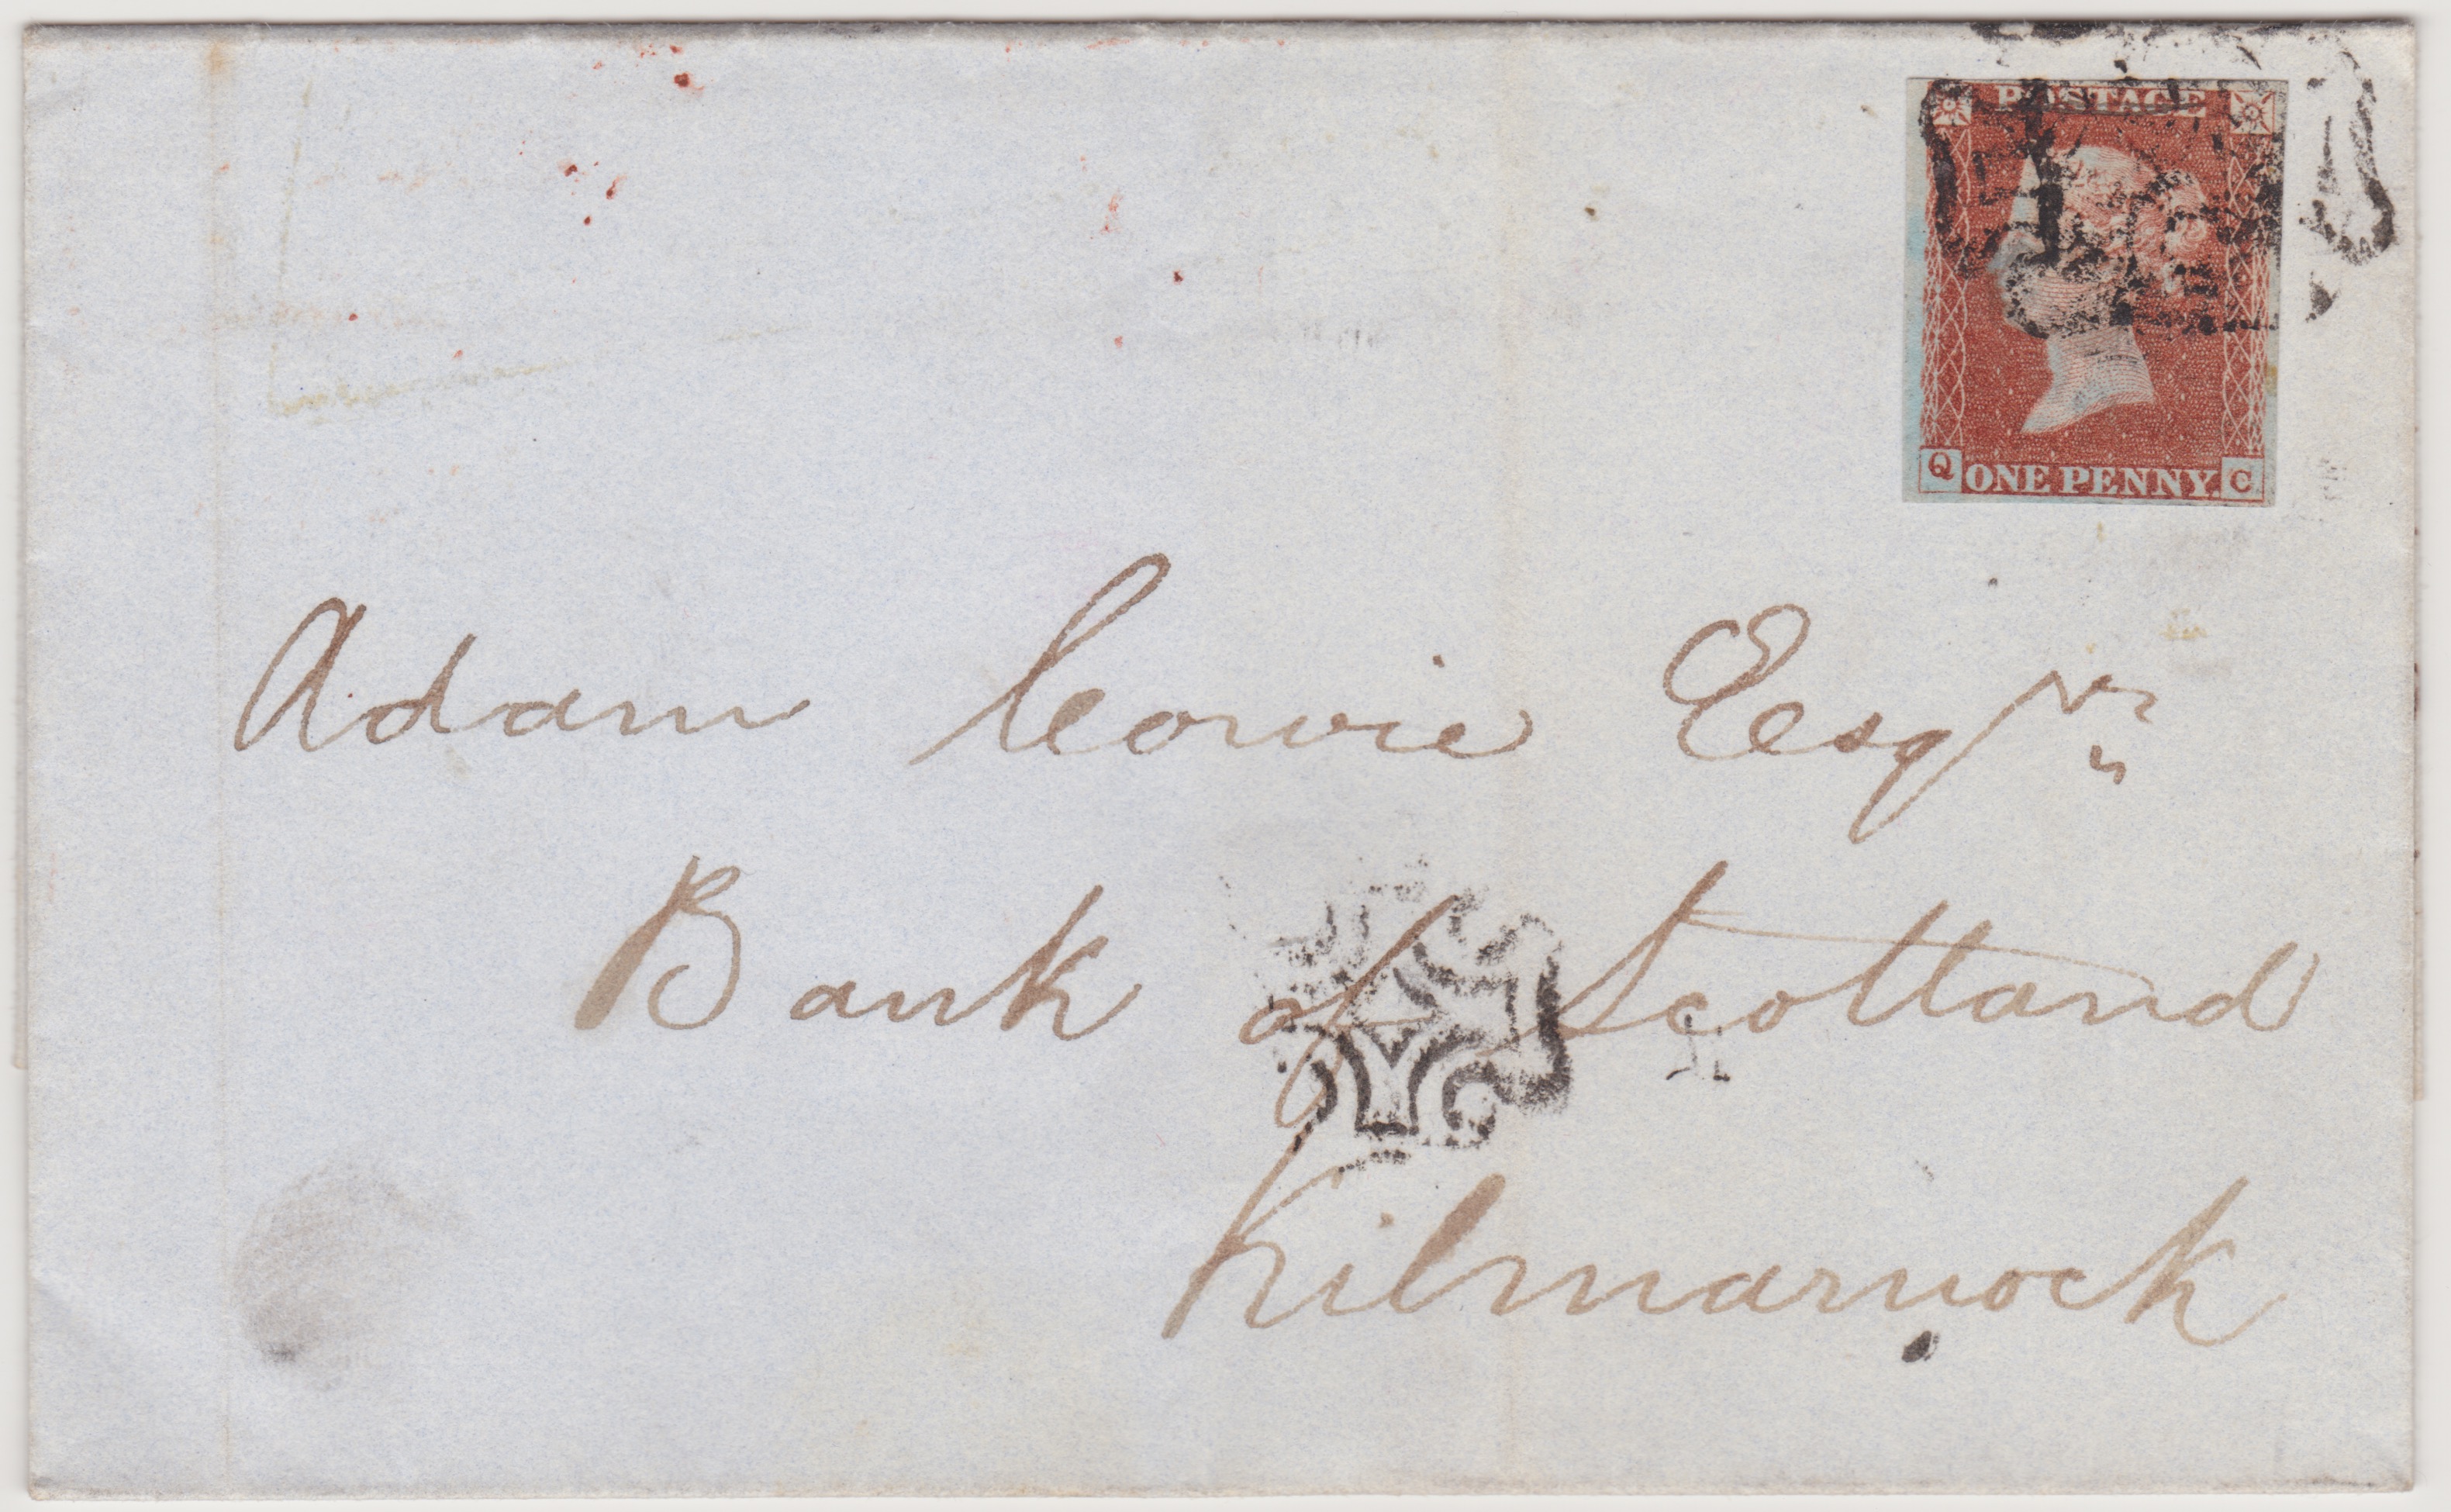 POSTAGE
Q ONE PENNY. C
Adam Cowie Esqr
Bank of Scotland
Kilmarnock